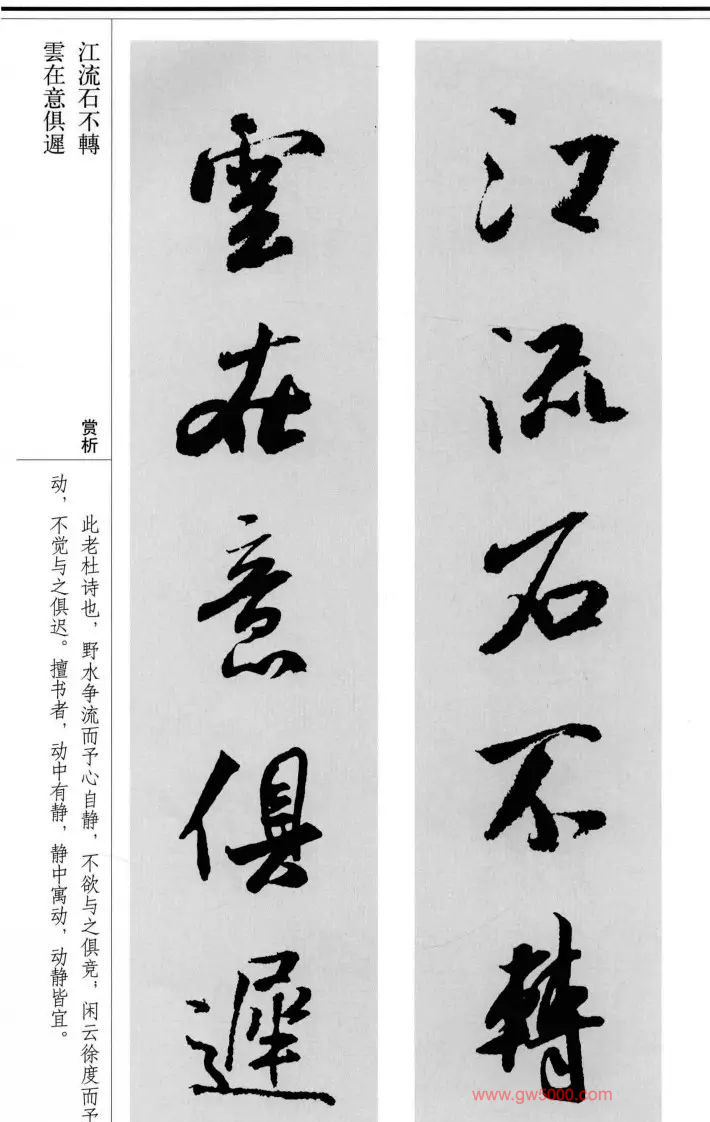 江流石不轉
雲在意俱遲
江流石不轉
雲在意俱遲
赏析
此老杜诗也，野水争流而予心自静，不欲与之俱竞；闲云徐度而予
动，不觉与之俱迟。擅书者，动中有静，静中寓动，动静皆宜。
www.gw5000.com